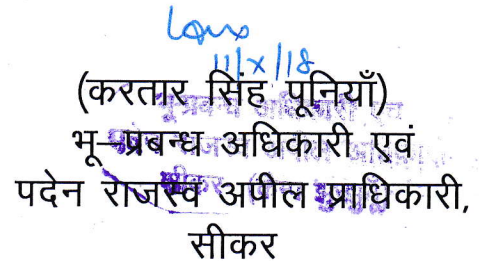 11/x/18
(करतार सिंह पूनियाँ)
भू–प्रबन्ध अधिकारी एवं
पदेन राजस्व अपील प्राधिकारी,
सीकर